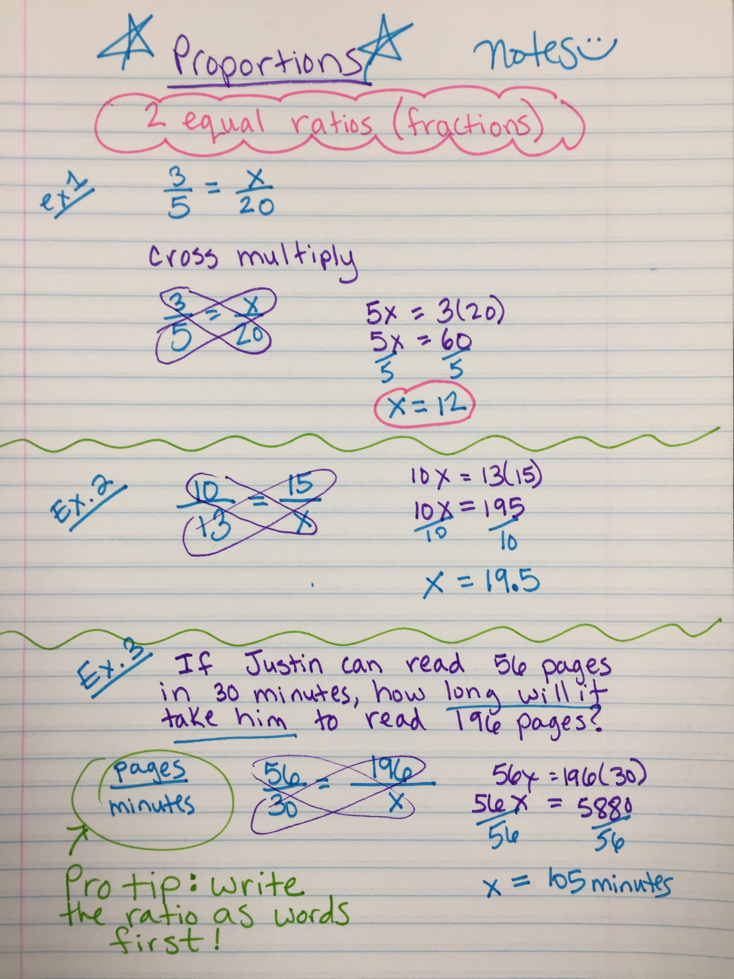 Proportions
Notes
2 equal ratios (fractions)
ex1
3/5 = x/20
cross multiply
3/5 = x/20
5x = 3(20)
5x/5 = 60/5
x = 12
Ex.2
10/13 = 15/x
10x = 13(15)
10x/10 = 195/10
x = 19.5
Ex.3
If Justin can read 56 pages
in 30 minutes, how long will it
take him to read 196 pages?
pages/minutes
56/30 = 196/x
56x = 196(30)
56x/56 = 5880/56
x = 105 minutes
Pro tip: write
the ratio as words
first!